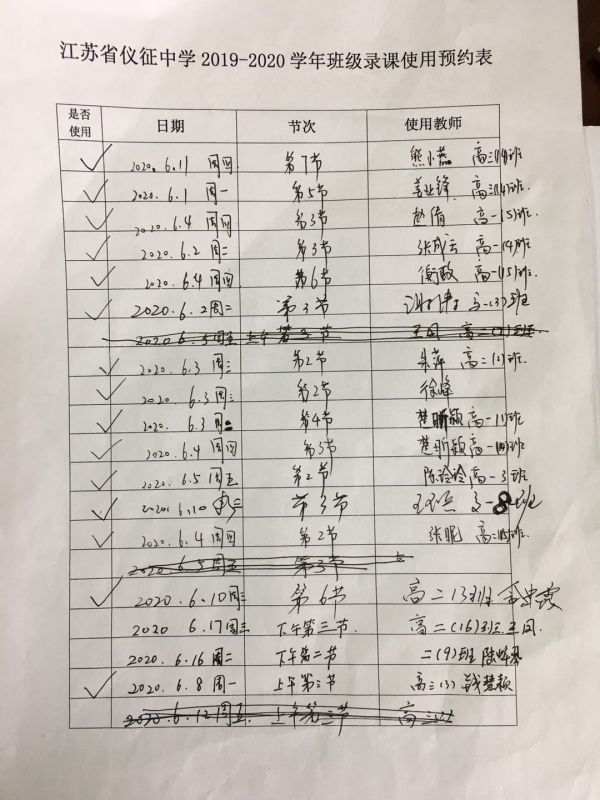 江苏省仪征中学2019-2020学年班级录课使用预约表
是否使用 日期 节次 使用教师
✓ 2020.6.11 周四 第7节 熊小燕 高二(14)班
✓ 2020.6.1 周一 第5节 高二(14)班
✓ 2020.6.4 周四 第3节 赵倩 高一(5)班.
✓ 2020.6.2 周二 第3节 张成云 高一(4)班
✓ 2020.6.4 周四 第6节 高一(15)班.
✓ 2020.6.2周二 第3节 高一(3)班
2020 6.5周五 上午第3节 王闰 高二
✓ 2020.6.3 周三 第2节 朱萍 高二(1)班
✓ 2020.6.3周三 第2节 徐峰
✓ 2020.6.3周二 第4节 楚昕颖高一(1)班
✓ 2020.6.4 周四 第3节 楚昕颖高一 班
✓ 2020.6.5周五 第2节 陈玲玲高一3班
✓ 2020.6.10 周三 第3节 高一8班
✓ 2020.6.4 周四 第2节 张昵 高二(15)班.
2020.6.5 周五 第3节
✓ 2020.6.10周三 第6节 高二13班
2020 6.17周三 下午第三节. 高二(16)班王闰.
2020.6.16 周二 下午第二节 二(9)班
✓ 2020.6.8 周一 上午第三节 高二(3)
2020.6.12周五. 上午第三节 高二